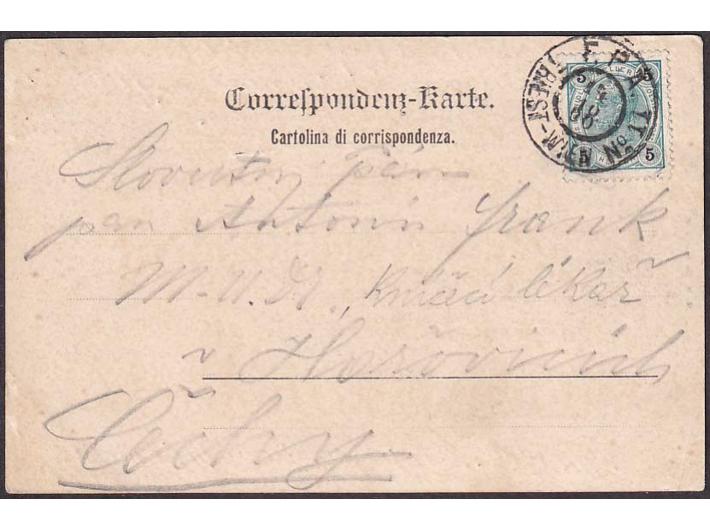 Correspondenz-Karte.
Cartolina di corrispondenza.
TRIEST-WIEN No 11 F.P.
5 5
5 5
Slovutný pán
pan Antonín Frank
M.U.Dr. lékař
v Hořovicích
Čechy